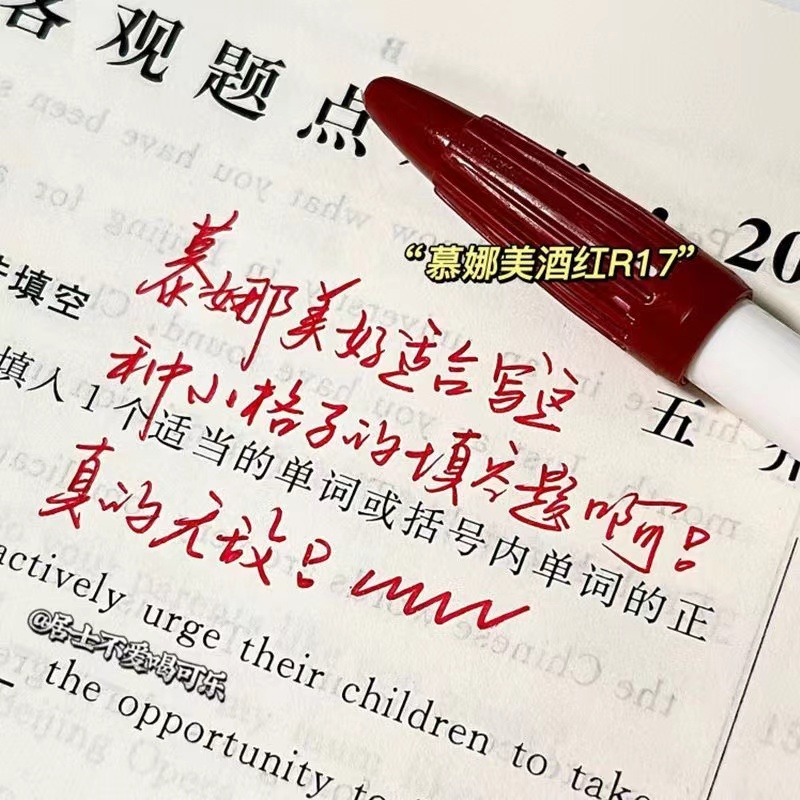 客观题点
20
“慕娜美酒红R17”
填空
慕娜美好适合写这
五
种小格子的填空题啊!
填入1个适当的单词或括号内单词的正
真的无敌!
actively urge their children to take
@居士不爱喝可乐
the opportunity to